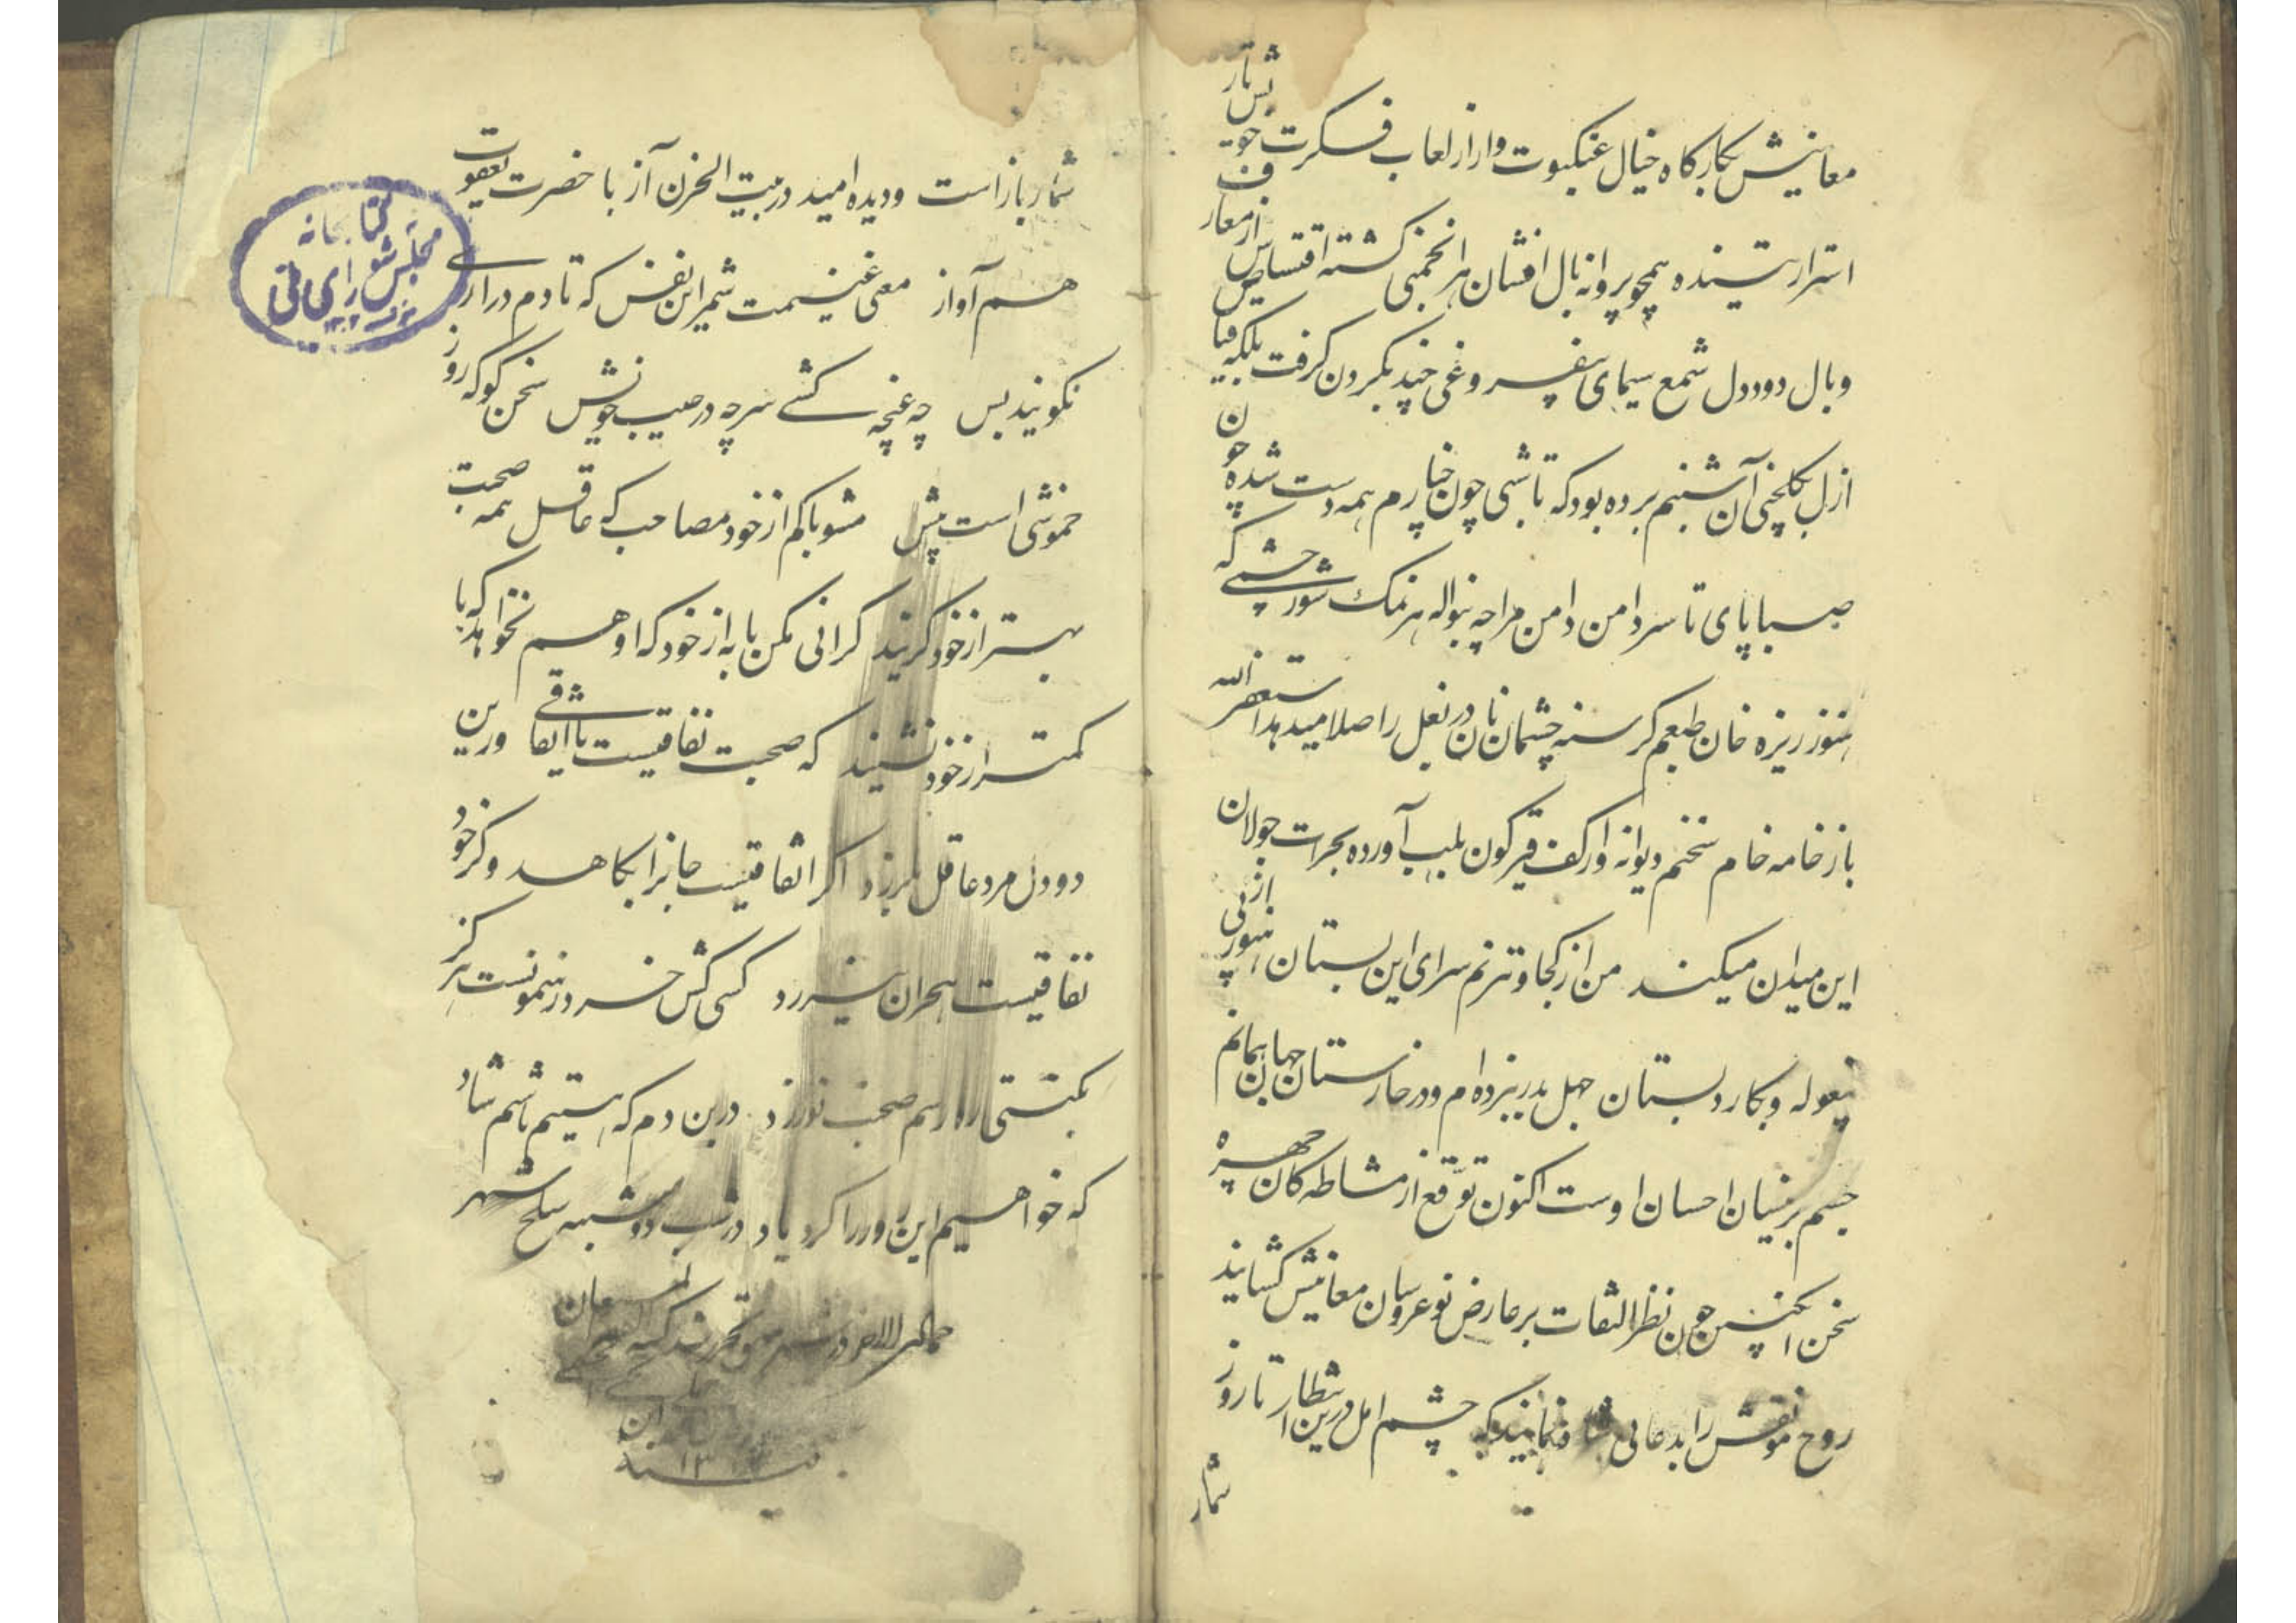 معانیش بکارگاه خیال عنکبوت وار از لعاب فکرت خویش تار
استرار تننده همچو پروانه بال افشان هر انجمنی گشته اقتباس از معارف
وبال دود دل شمع سیمای بیفروغی چند بگردن گرفت بلکه
ازل بگلچنی آن شبنم برده بود که تا شبی چون خیارم همه دست شده چون
صبا پای تا سر دامن دامن مراچه بنواله هر نمک شور چشمی که
هنوز ریزه خان طبعم گرسنه چشمان نان در بغل را صلا میدهد استغفر الله
باز خامه خام سخنم دیوانه وار کف قیرگون بلب آورده بجرات جولان
این میدان میکند من از کجا و ترنم سرای این بستان هنوز از بی
بیغوله و بکار دبستان جهل بدر نزده‌ام و در خارستان جهان همانم
جسم بر نیسان احسان اوست اکنون توقع از مشاطه کان چهره
سخن آنکه چون نظر التفات بر عارض نوعروسان معانیش گشایند
روح مؤلفش را بدعائی شاد فرمایند که چشم امل درین انتظار تا روز
شمار
شمار باز است و دیده امید در بیت الحزن آز با حضرت یعقوب
هم آواز معی غنیمت شمر این نفس که تا دم در آری
نگویند بس چه غنچه کشے سر چه در جیب خویش سخن گو که روز
خموشی است پیش مشو با کم از خود مصاحب که عاقل همه صحبت
بهتر از خود گزیند گرانی مکن با به از خود که او هم نخواهد که با
کمتر از خود نشیند که صحبت نفاقیست یا اتفاقی ورین
دو دل مرد عاقل بلرزد اگر اتفاقیست جانرا بکاهد و گر خود
نفاقیست بهجران نیرزد کسی کش خرد رهنمونست هرگز
بگیتی ره و رسم صحبت نورزد درین دم که هستیم باشیم شاد
که خواهیم این روز را کرد یاد در شب دوشنبه سلخ شهر
کتابخانه
مجلس شورای ملی